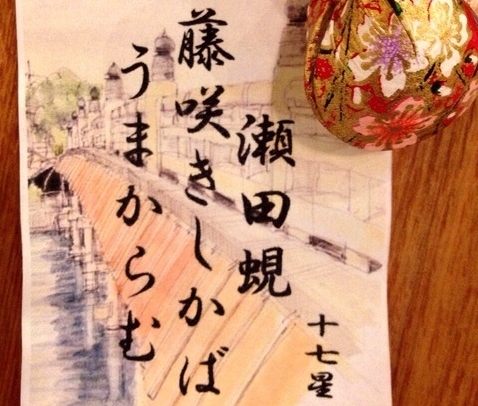 瀬田蜆
藤咲きしかば
うまからむ
十七星